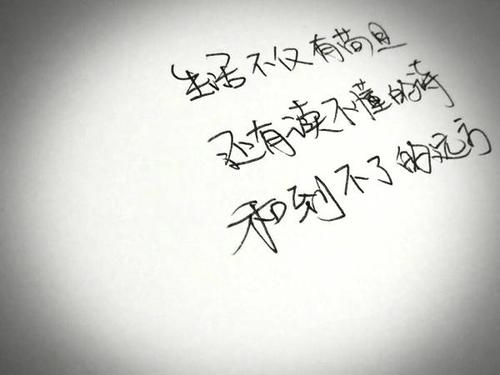 生活不仅有苟且
还有读不懂的诗
和到不了的远方